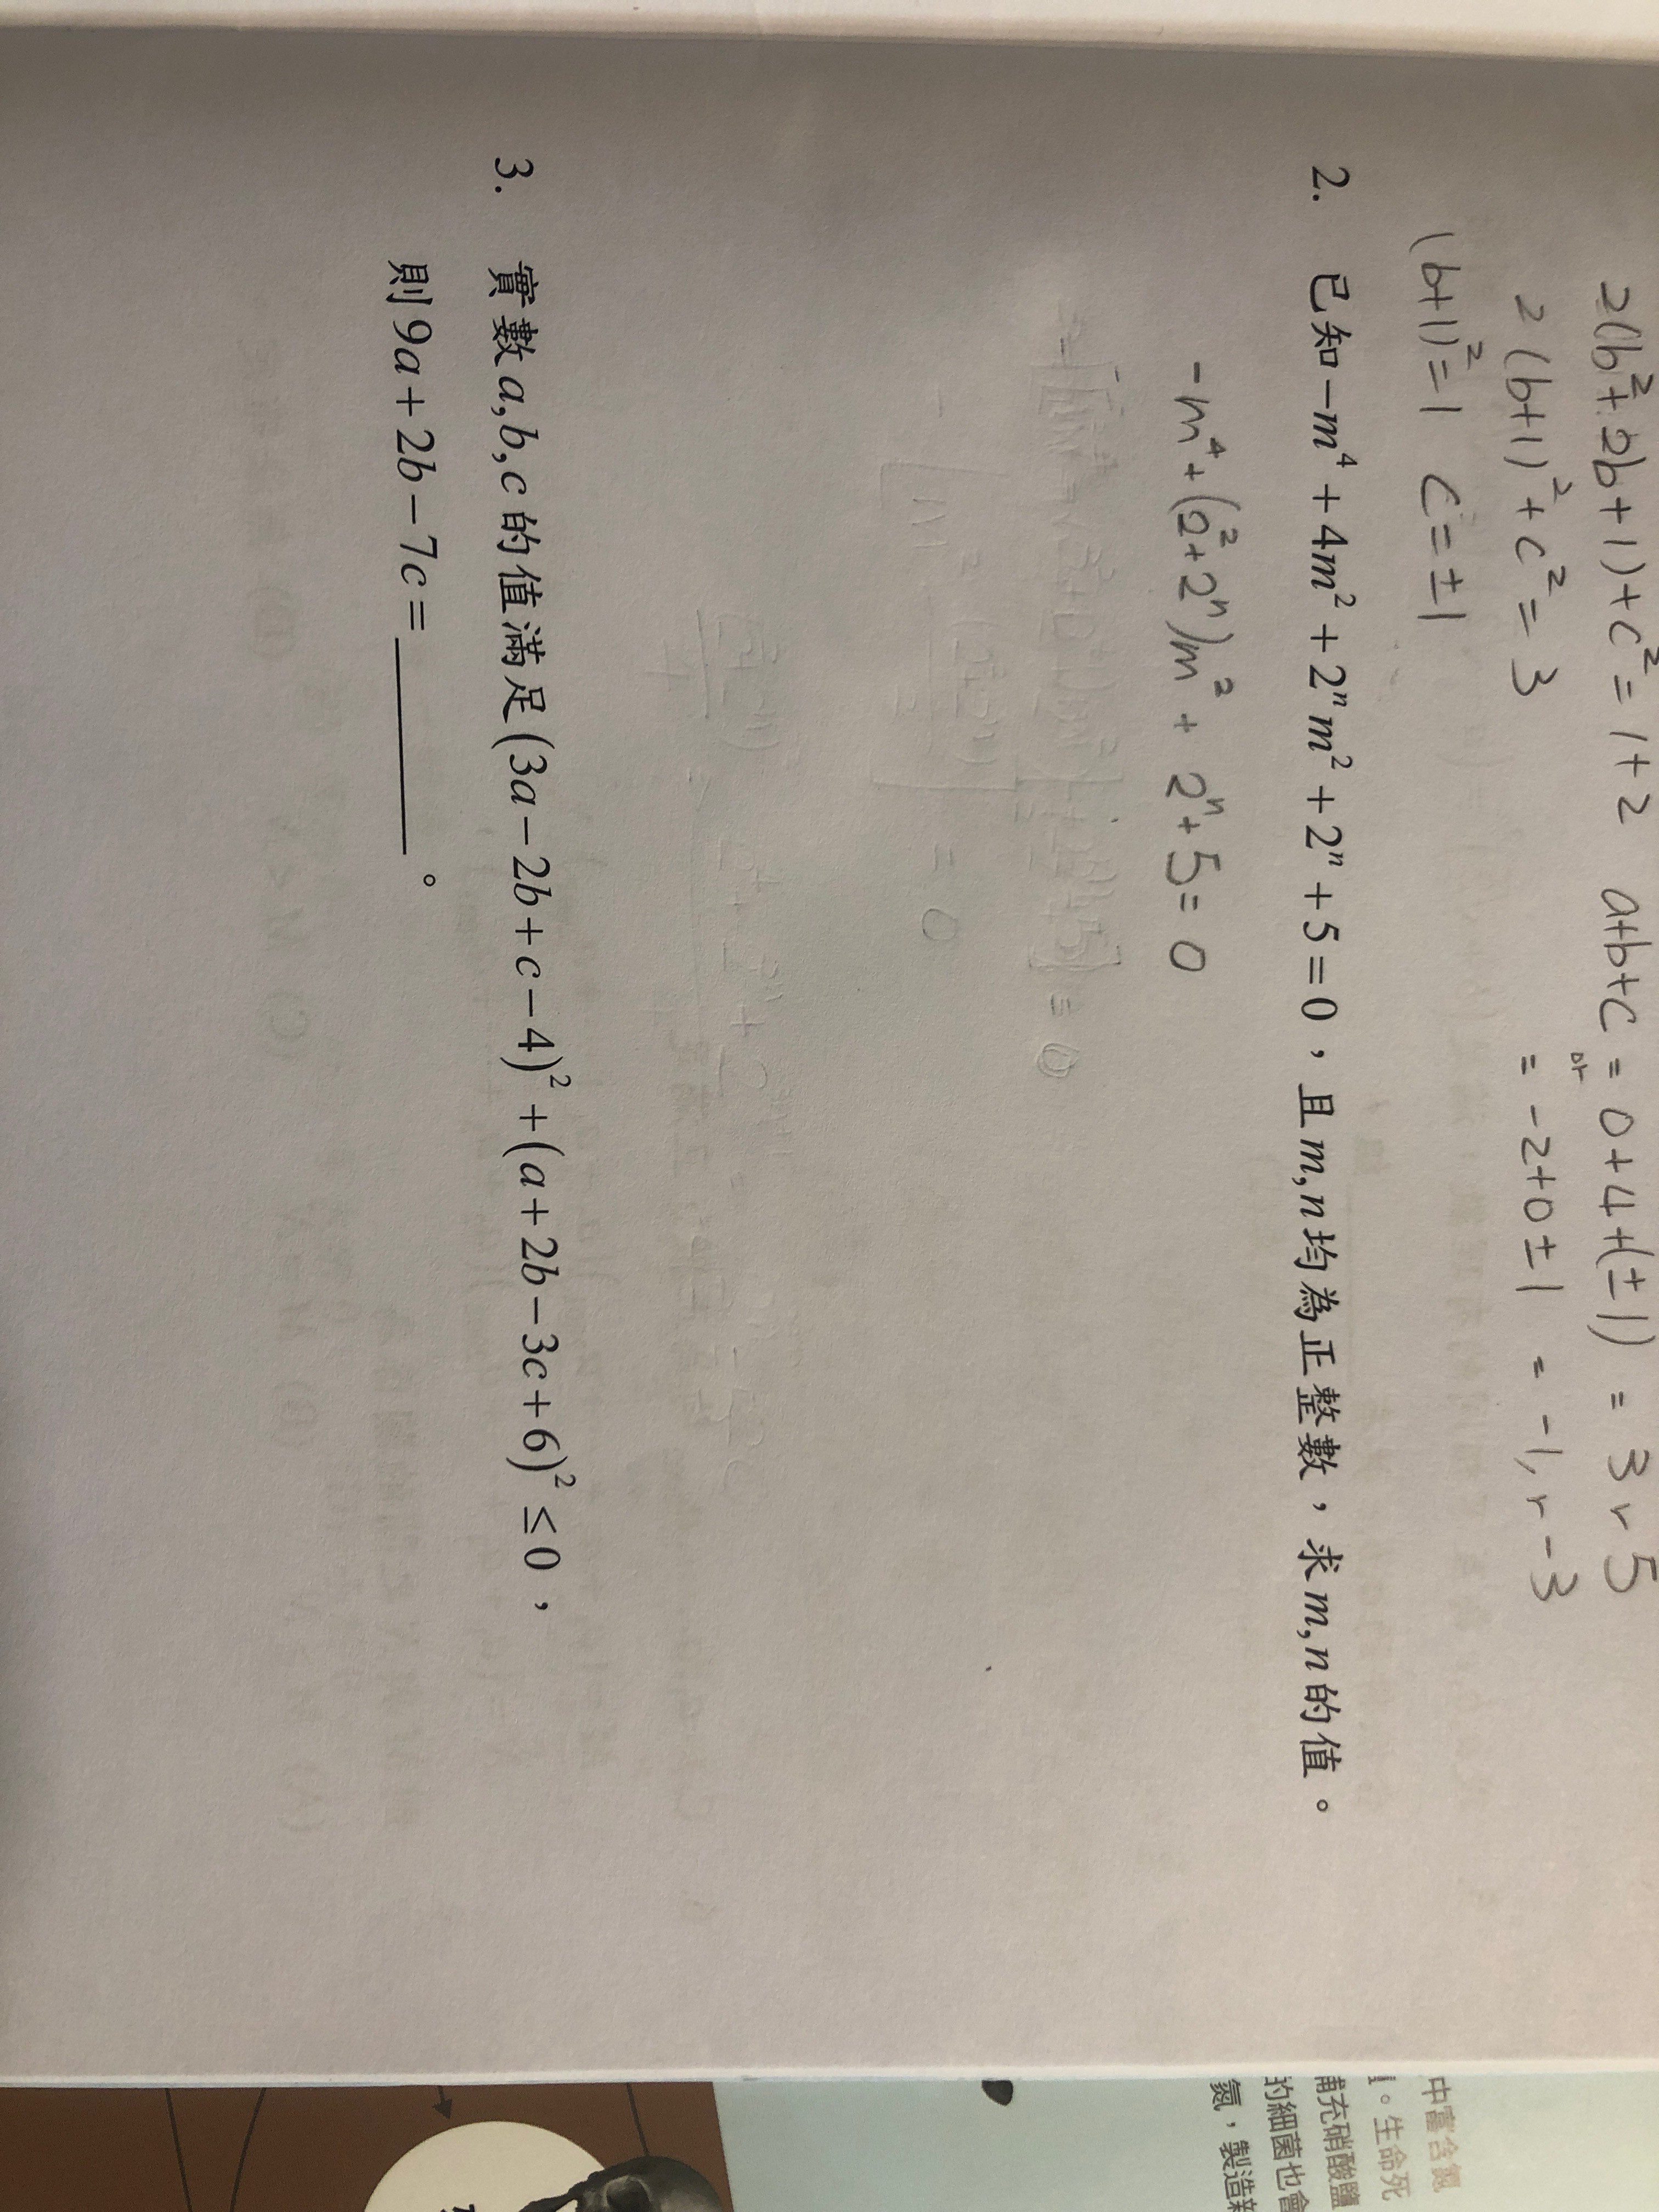 2(b²+2b+1)+c²=1+2 a+b+c = 0+4+(±1) = 3 r 5
or
2(b+1)²+c²=3 = -2+0±1 = -1, r -3
(b+1)²=1 c=±1
2. 已知−m⁴+4m²+2ⁿm²+2ⁿ+5=0，且m,n均為正整數，求m,n的值。
-m⁴+(2²+2ⁿ)m²+2ⁿ+5=0
3. 實數a,b,c的值滿足(3a−2b+c−4)²+(a+2b−3c+6)²≤0，
則9a+2b−7c=______。
中富含氮
。生命死
補充硝酸鹽
的細菌也會
氮，製造新